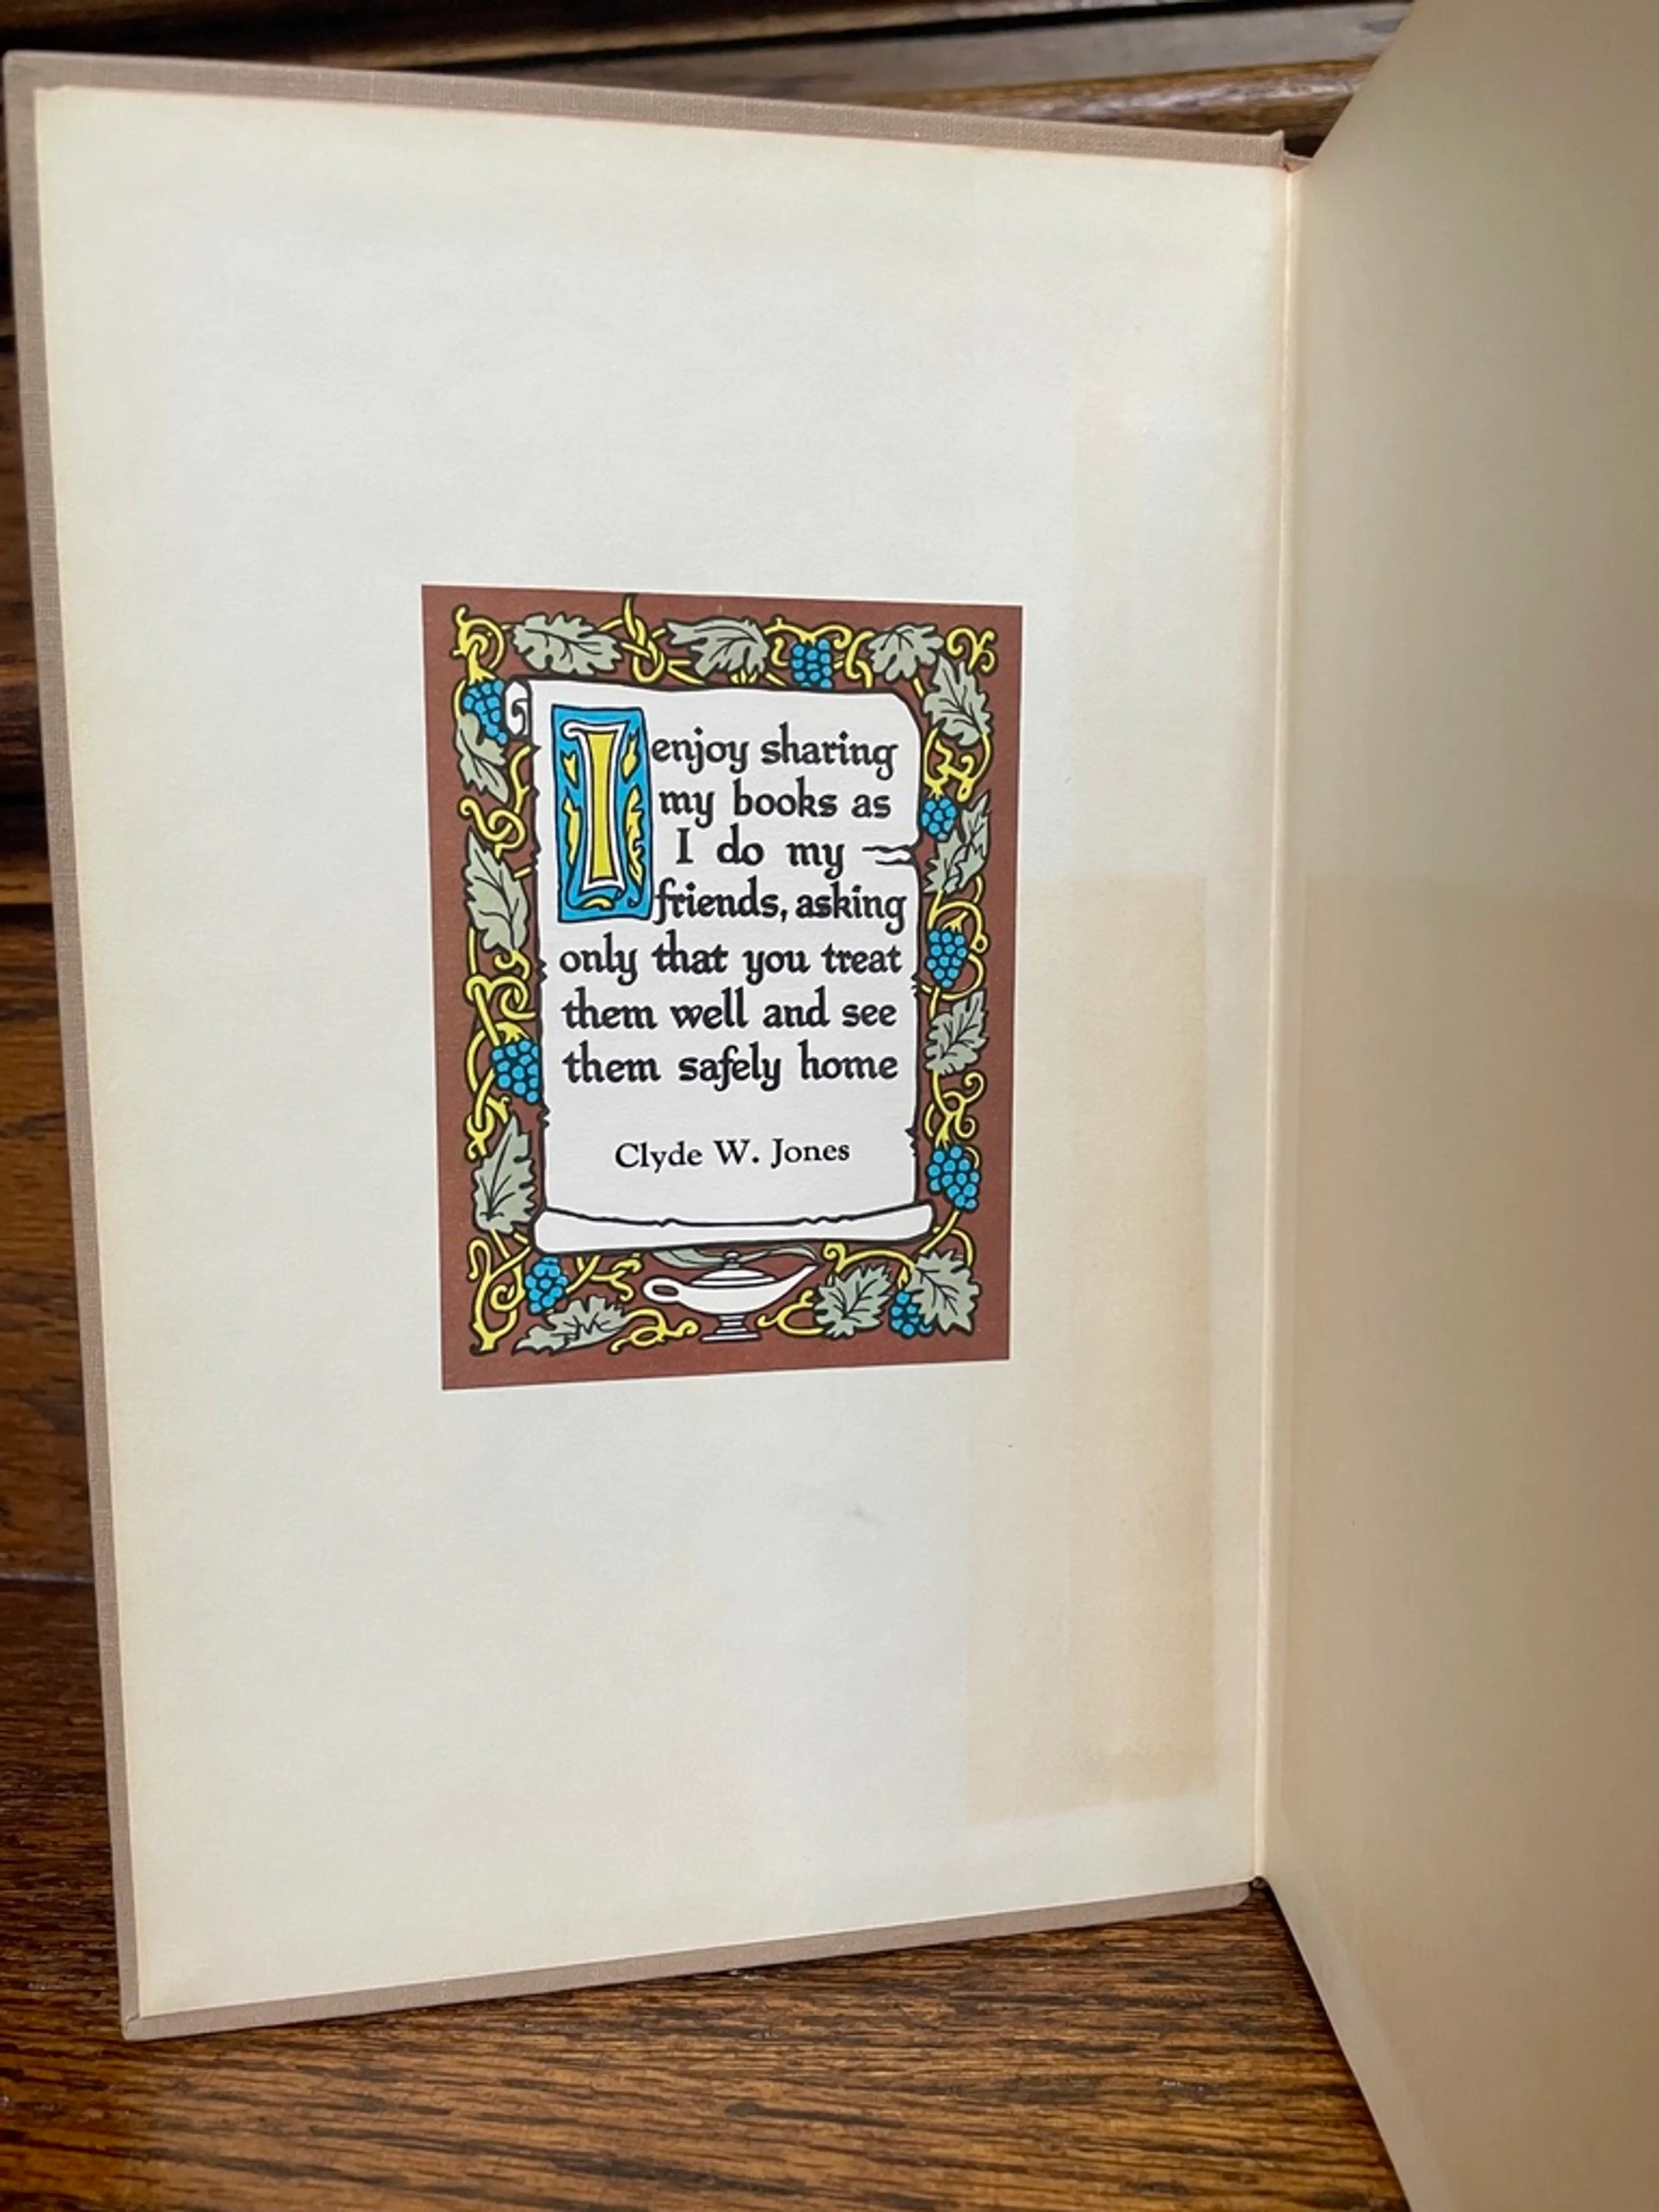 I enjoy sharing
my books as
I do my
friends, asking
only that you treat
them well and see
them safely home
Clyde W. Jones